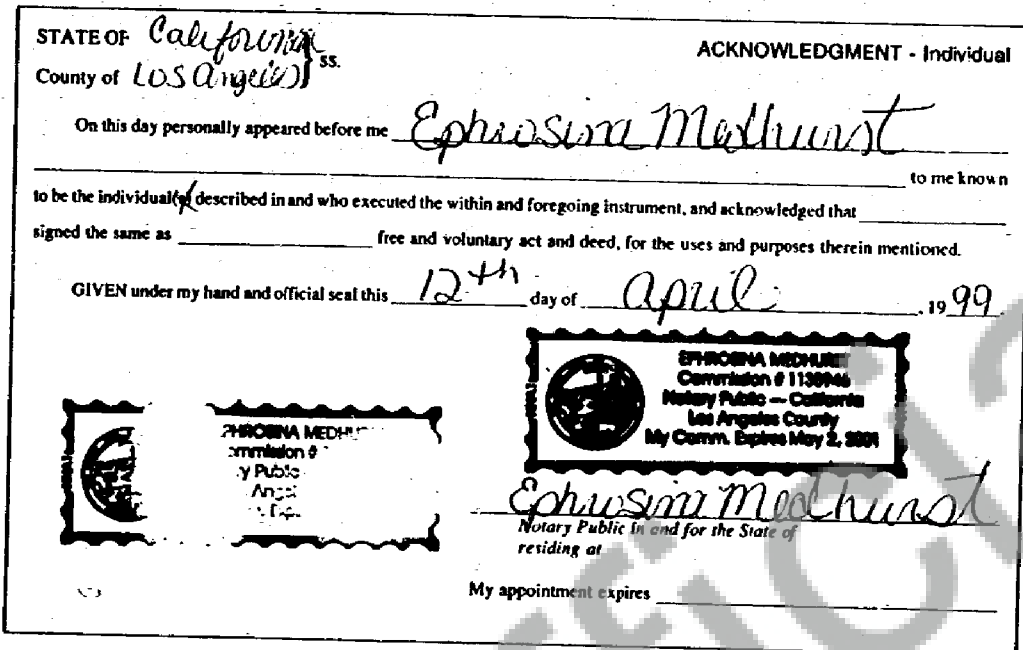 STATE OF California
ACKNOWLEDGMENT - Individual
County of Los Angeles } ss.
On this day personally appeared before me Ephrosina Medhurst
to me known
to be the individual(s) described in and who executed the within and foregoing instrument, and acknowledged that
signed the same as free and voluntary act and deed, for the uses and purposes therein mentioned.
GIVEN under my hand and official seal this 12th day of April, 19 99.
EPHROSINA MEDHURST
Commission # 1138946
Notary Public — California
Los Angeles County
My Comm. Expires May 2, 2001
PHROSINA MEDHU
ommission #
y Public
Angel
Ephrosina Medhurst
Notary Public in and for the State of
residing at
My appointment expires